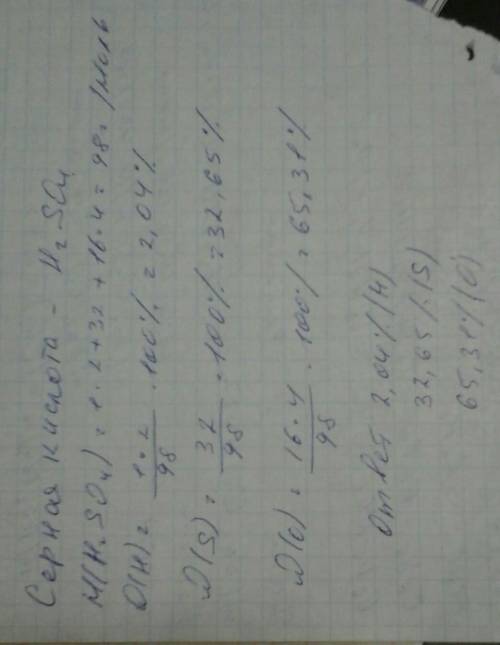 Серная кислота - H₂SO₄
M(H₂SO₄) = 1·2+32+16·4 = 98г/моль
ω(H) = 1·2/98 · 100% = 2,04%
ω(S) = 32/98 · 100% = 32,65%
ω(O) = 16·4/98 · 100% = 65,31%
Ответ 2,04%(H)
32,65%(S)
65,31%(O)